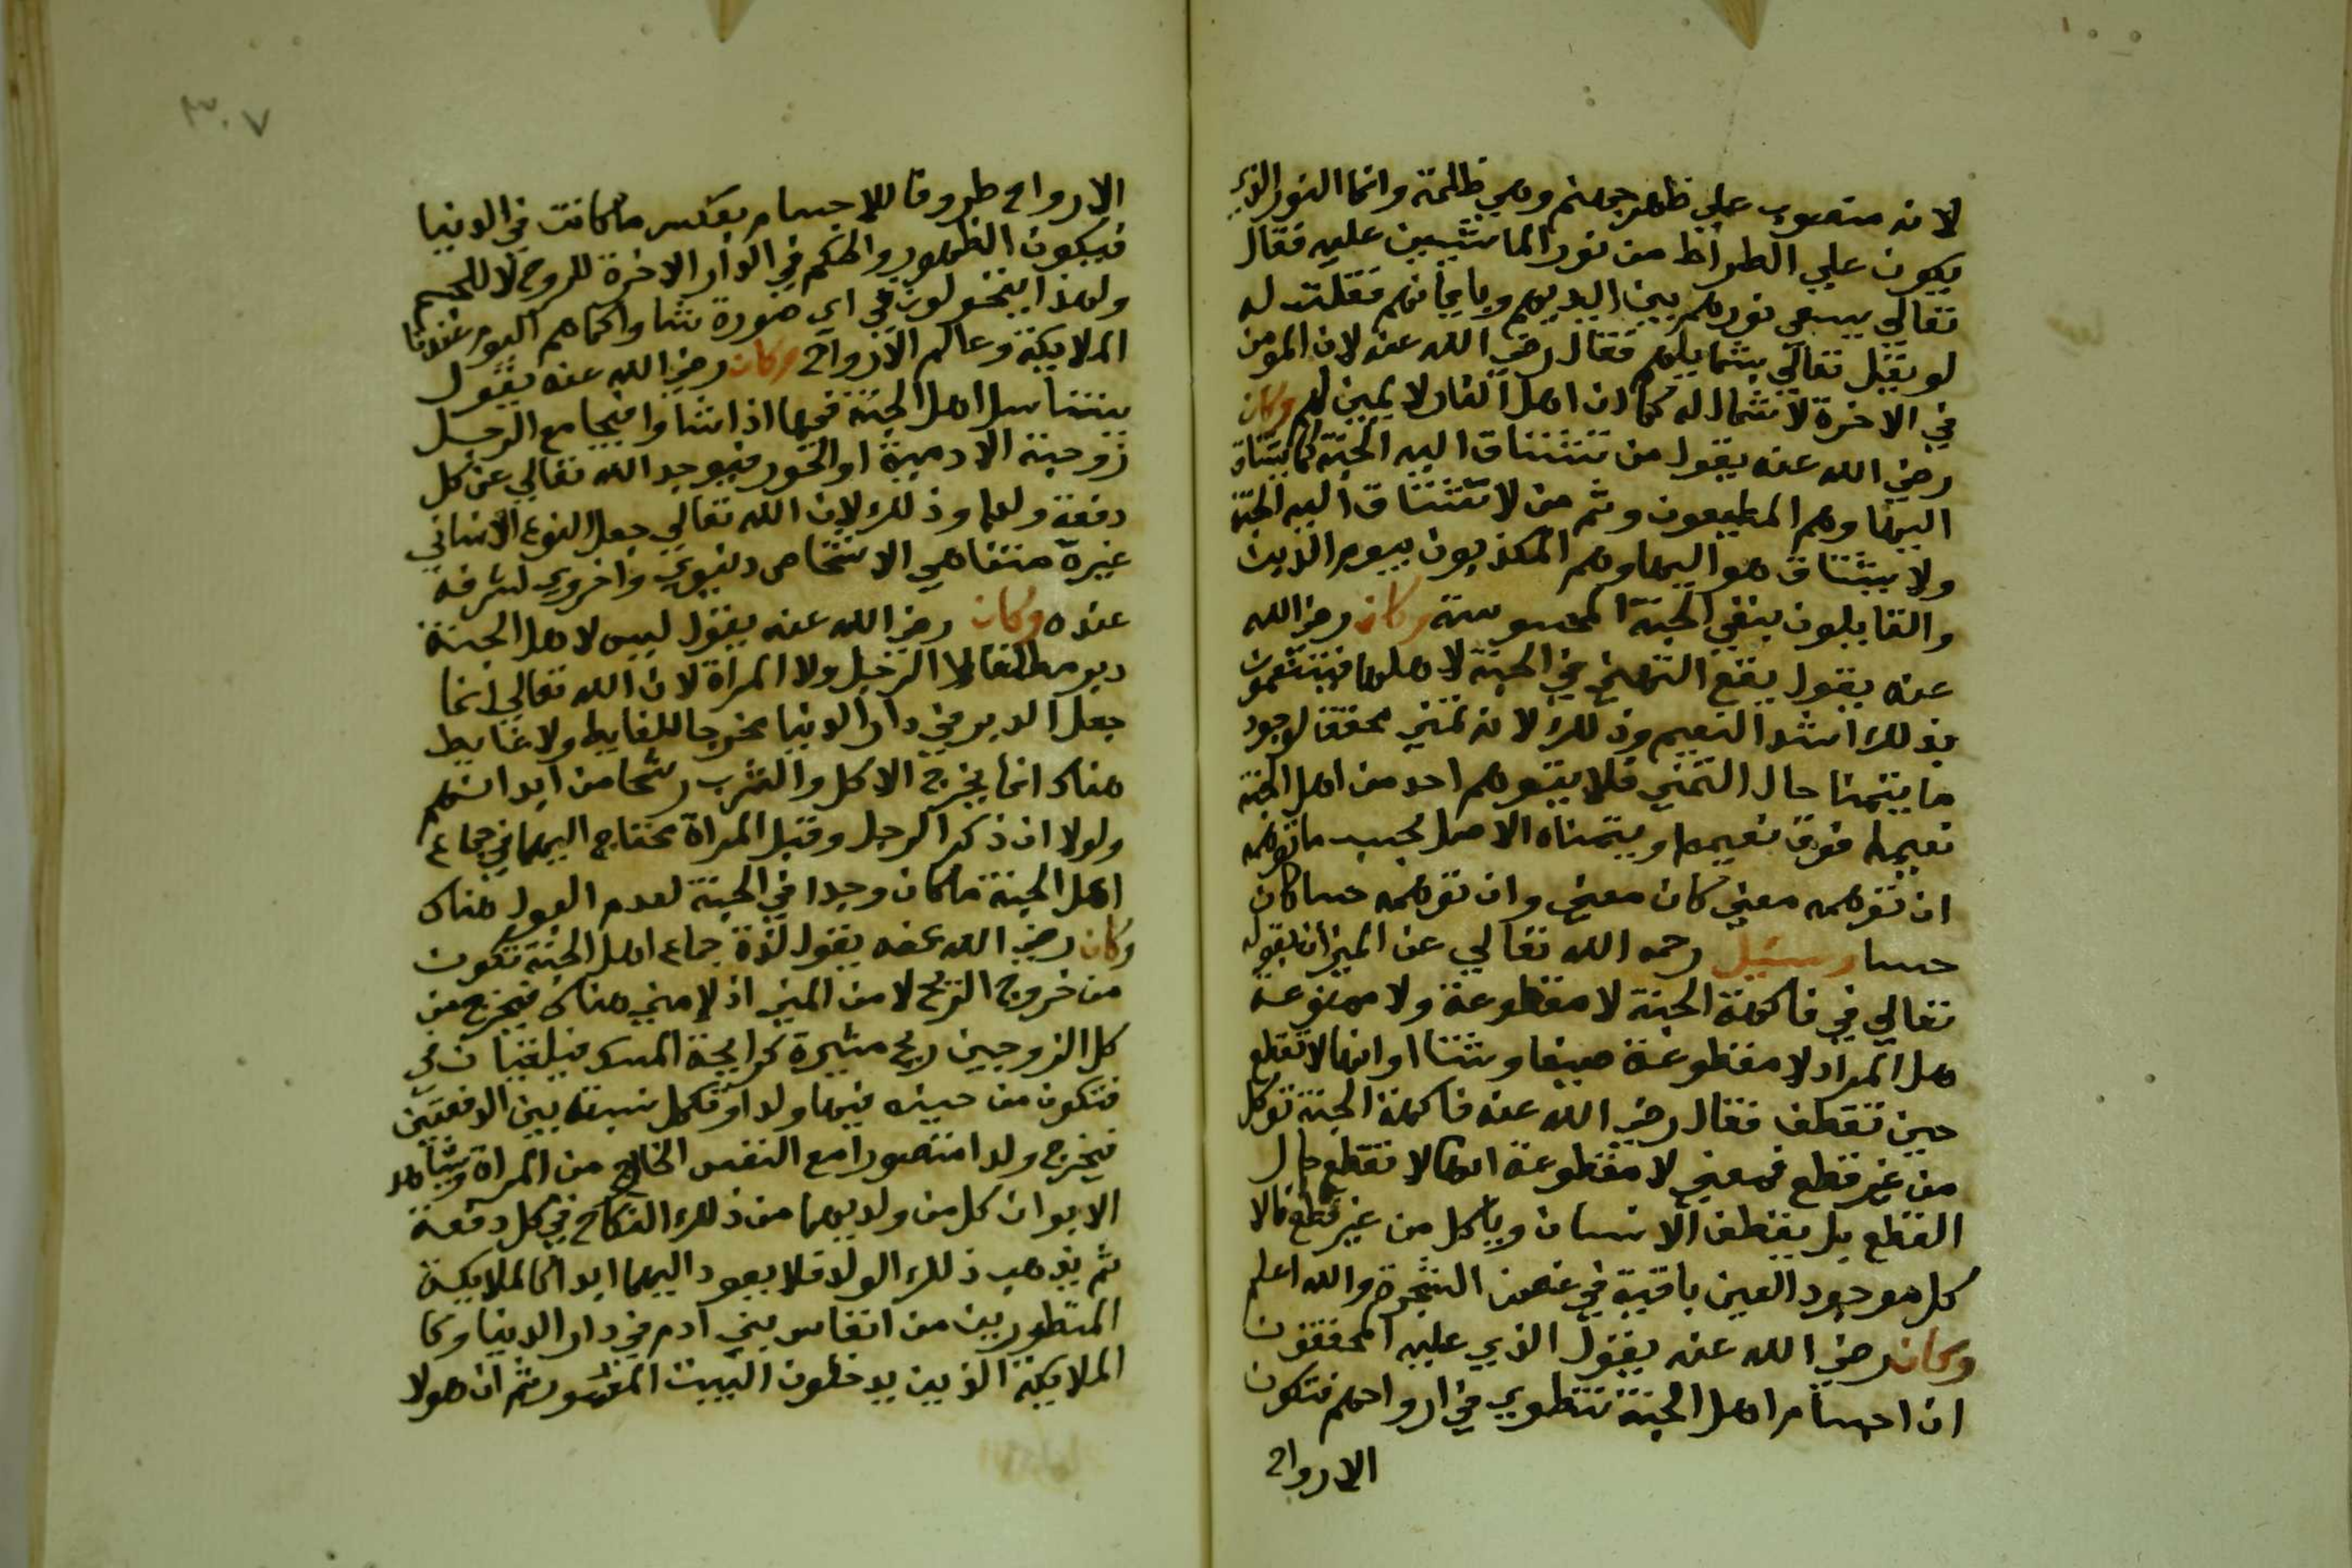 لانه منصوب علي ظهر جهنم وهي ظلمة وانما النور الذي
يكون علي الطراط من نور الماشيين عليه فقال
تعالي يسعي نورهم بين ايديهم وبايمانهم فقلت له
لو يقل تعالي بشمايلهم فقال رضي الله عنه لان المومن
في الاخرة لا شمال له كما ان اهل النار لا يمين لهم وكان
رضي الله عنه يقول من تشتاق اليه الجنة كما يشتاق
اليها وهم المطيعون وثم من لا تشتاق اليه الجنة
ولا يشتاق هو اليها وهم المكذبون بيوم الدين
والقايلون بنفي الجنة المحسوسة وكان رضي الله
عنه يقول يقع التمني في الجنة لاهلها فيتنعمون
بذلك اشد النعيم وذلك لانه تمني محقق لوجود
ما يتمنا حال التمني فلا يتوهم احد من اهل الجنة
نعيما فوق نعيمه او يتمناه الا حصل بحسب ما توهمه
ان توهمه معني كان معني وان توهمه حسا كان
حسا وسئيل رحمه الله تعالي عن الميزان بقوله
تعالي في فاكهة الجنة لا مقطوعة ولا ممنوعة
هل المراد لا مقطوعة صيفا وشتاا وانها لا تقطع
حين تقطف فقال رضي الله عنه فاكهة الجنة توكل
من غير قطع فمعني لا مقطوعة انها لا تقطع حال
القطع بل يقطف الانسان وياكل من غير قطع فالا
كل موجود العين باقية في غصن الشجرة والله اعلم
وكان رضي الله عنه يقول الذي عليه المحققون
ان اجسام اهل الجنة تنطوي في ارواحهم فتكون
الارواح
٣٠٧
الارواح ظروفا للاجسام بعكس ما كانت في الدنيا
فيكون الظهور والحكم في الدار الاخرة للروح لا للجسم
ولهذا يتحولون في اي صورة شاوا كما هم اليوم عندنا
الملايكة وعالم الارواح وكان رضي الله عنه يقول
يتناسل اهل الجنة فيها اذا شاوا فيجامع الرجل
زوجته الادمية او الحور فيوجد الله تعالي عن كل
دفعة ولدا وذلك لان الله تعالي جعل النوع الانساني
غيرة متناهي الاشخاص دنيوي واخروي لشرفه
عنده وكان رضي الله عنه يقول ليس لاهل الجنة
دبر مطلقا لا الرجل ولا المراة لان الله تعالي انما
جعل الدبر في دار الدنيا مخرجا للغايط ولا غايط
هناك انما يخرج الاكل والشرب رشحا من ابدانهم
ولولا ان ذكر الرجل وقبل المراة محتاج اليهما في جماع
اهل الجنة ما كان وجدا في الجنة لعدم البول هناك
وكان رضي الله عنه يقول لذة جماع اهل الجنة تكون
من خروج الريح لا من المني اذ لا مني هناك فيخرج من
كل الزوجين ريح مثيرة كرايحة المسك فيلقيان في
فتكون من حينه فيها ولدا وتكمل نسبته بين الدفعتين
فيخرج ولدا متصورا مع النفس الخارج من المراة ويشاهد
الابوان كل من ولديهما من ذلك النكاح في كل دفعة
ثم يذهب ذلك الولد فلا يعود اليهما ابدا كالملايكة
المتطورين من انفاس بني ادم في دار الدنيا وكا
الملايكة الذين يدخلون البيت المعمور ثم ان هولا